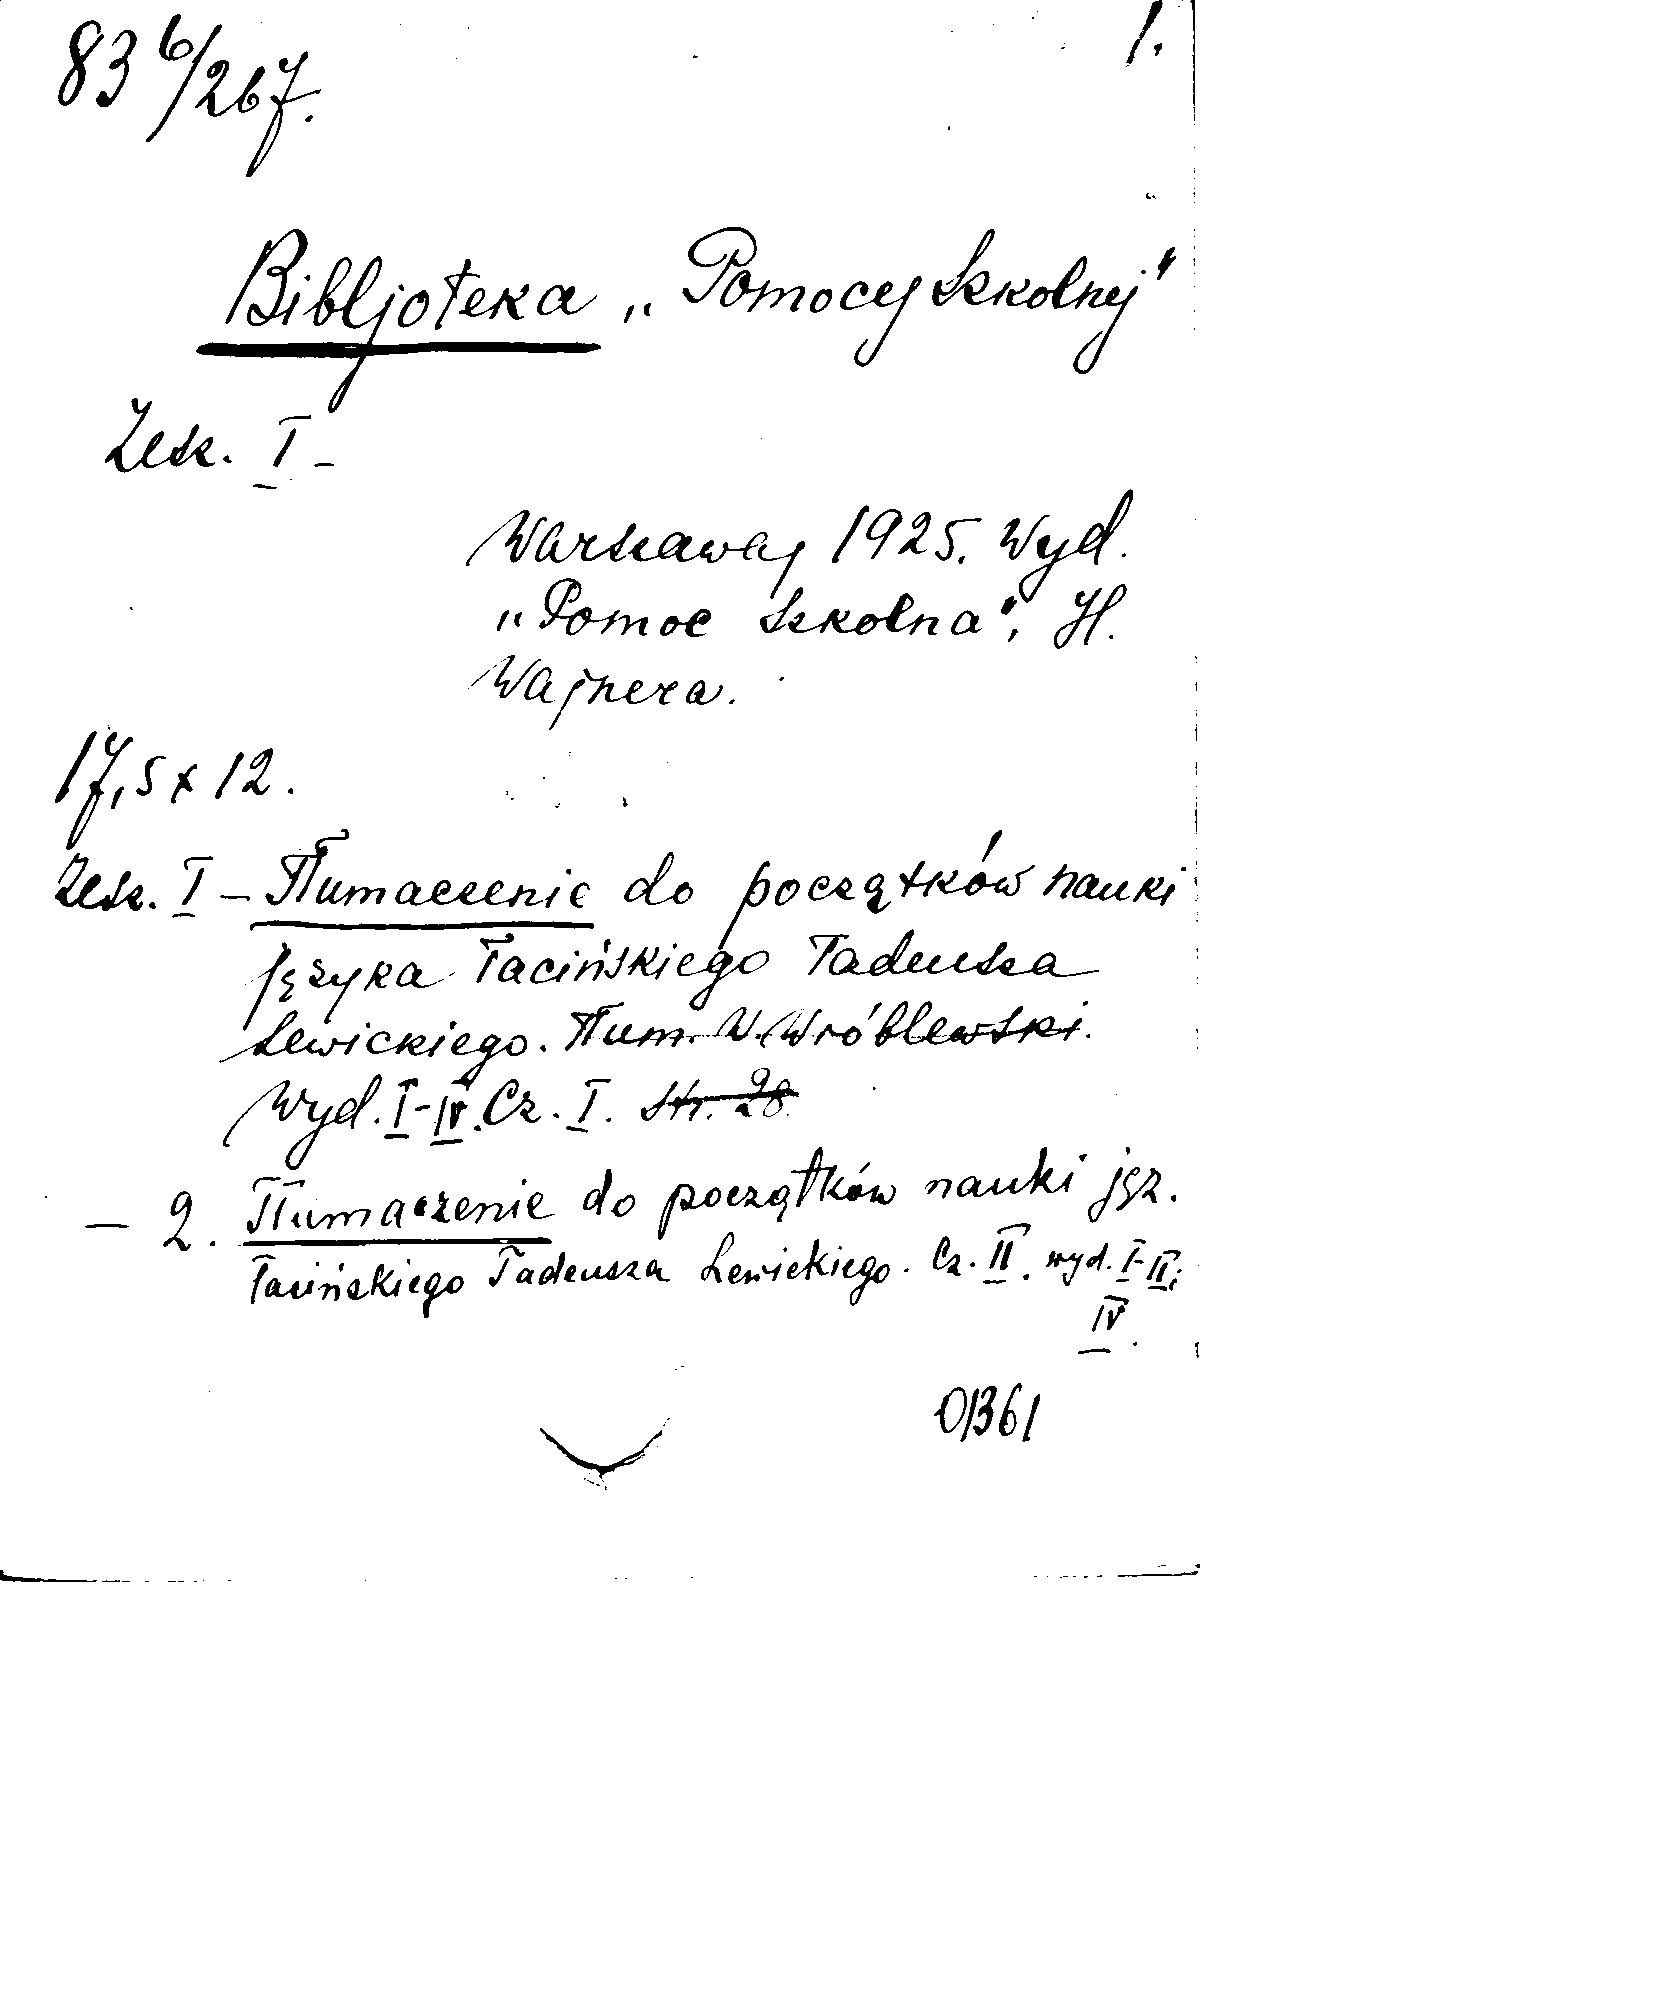 83 6/267.
1.
Bibljoteka „Pomocy Szkolnej"
Zesz. I -
Warszawa, 1925. Wyd.
„Pomoc Szkolna", H.
Wajnera.
17,5 x 12.
Zesz. I - Tłumaczenie do początków nauki
języka łacińskiego Tadeusza
Lewickiego. Tłum. W. Wróblewski.
Wyd. I-IV. Cz. I. str. 28
— 2. Tłumaczenie do początków nauki jęz.
łacińskiego Tadeusza Lewickiego. Cz. II. wyd. I-II;
IV.
01361